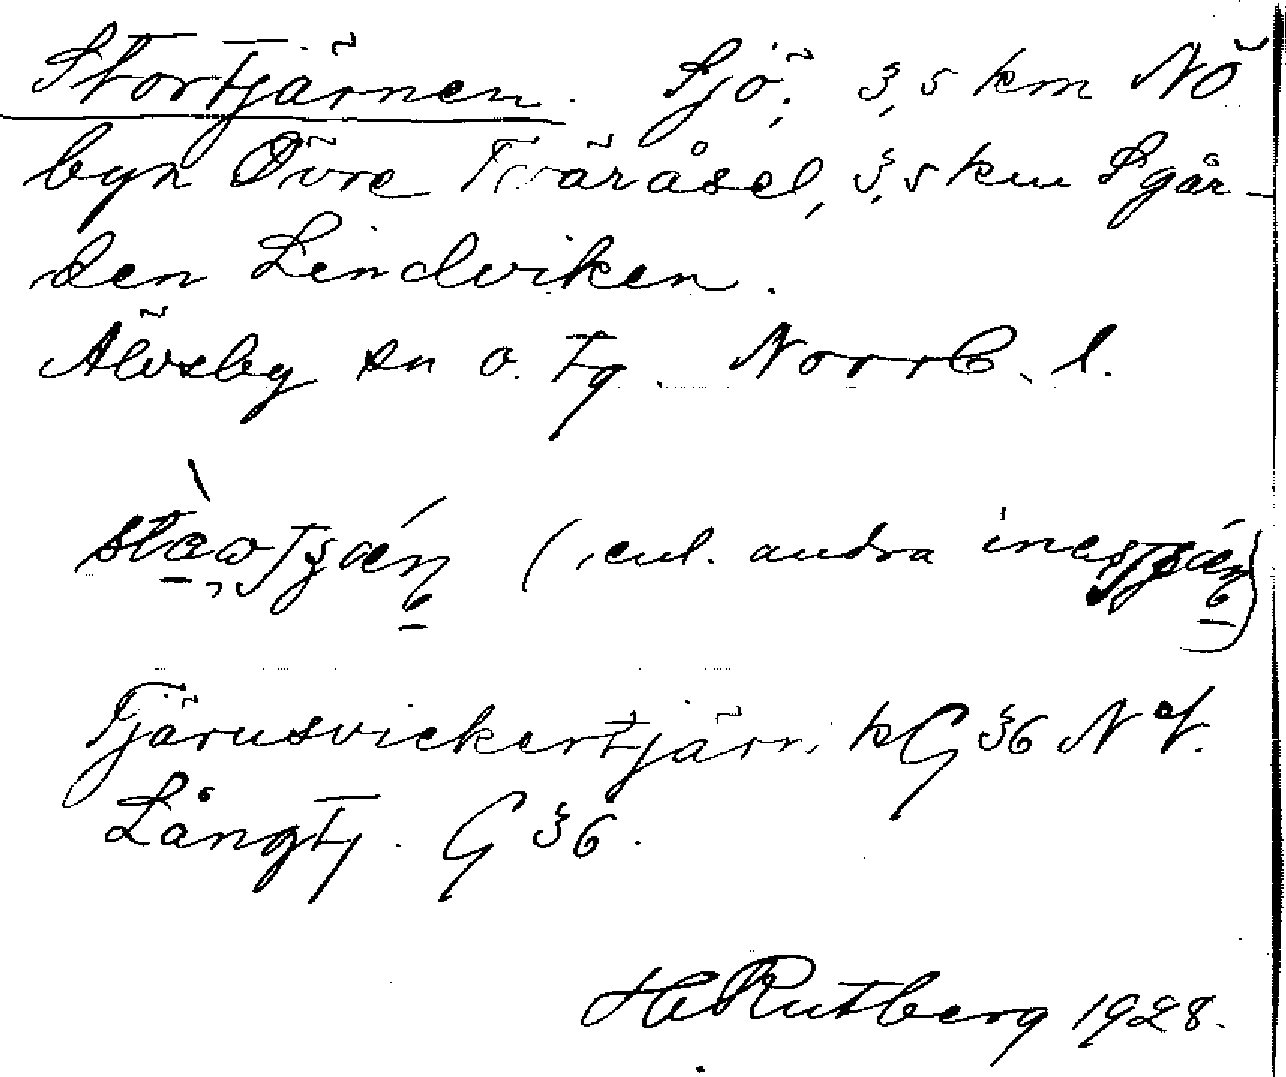 Stortjärnen. Sjö, 3,5 km NÖ
byn Övre Tväråsel, 3,5 km S går-
den Lindviken.
Älvsby sn o. tg. Norrb. l.
(enl. andra
Tjärnsvickertjärn. kG 36 N
Långtj. G 36.
H Rutberg 1928.